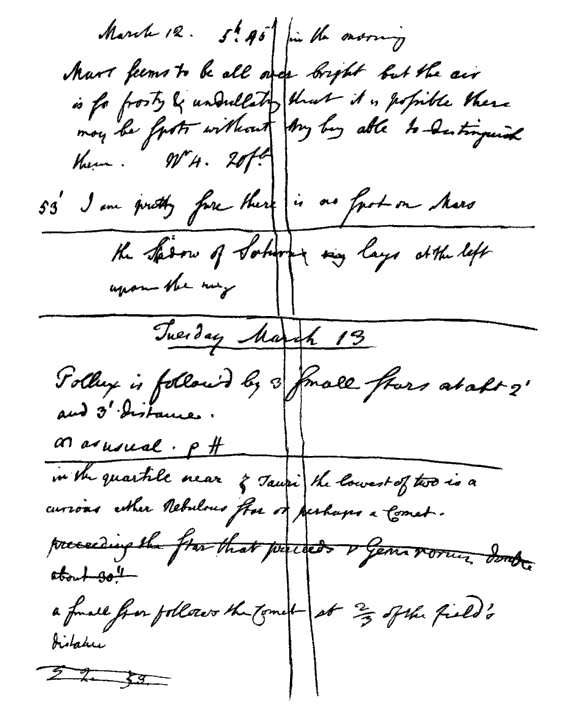 March 12. 5h 45' in the morning
Mars seems to be all over bright but the air
is so frosty & undulating that it is possible there
may be spots without my being able to distinguish
them. 20 ft
53' I am pretty sure there is no spot on Mars
the Shadow of Saturns ring lays at the left
upon the ring
Tuesday March 13
Pollux is followd by 3 small stars at abt 2'
and 3' distance.
as usual. p #
in the quartile near ζ Tauri the lowest of two is a
curious either Nebulous star or perhaps a Comet.
preceeding the star that preceeds Geminorum double
about 30"
a small star follows the Comet at 2/3 of the field's
distance